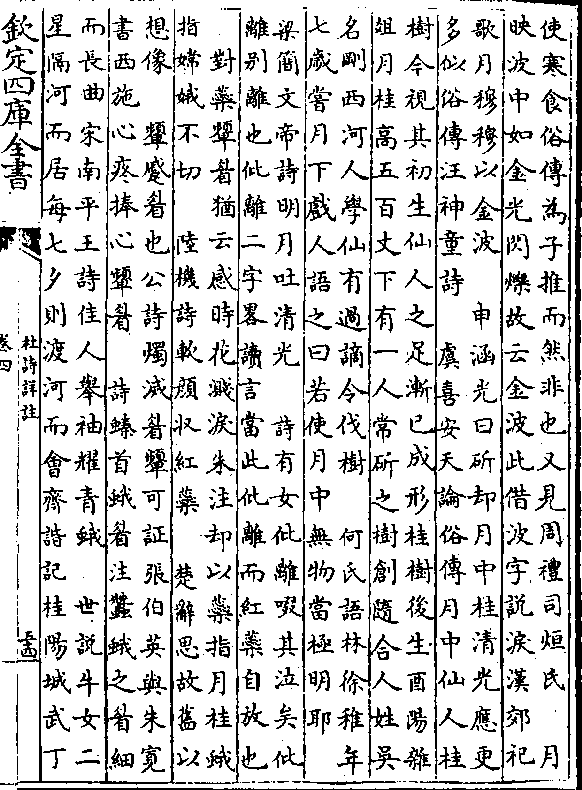 使寒食俗傳為子推而然非也又見周禮司烜氏　月
映波中如金光閃爍故云金波此借波字説淚漢郊祀
歌月穆穆以金波　申涵光曰斫却月中桂清光應更
多似俗傳汪神童詩　虞喜安天論俗傳月中仙人桂
樹今視其初生仙人之足漸已成形桂樹後生酉陽雜
俎月桂高五百丈下有一人常斫之樹創隨合人姓吳
名剛西河人學仙有過謫令伐樹　何氏語林徐稚年
七歳嘗月下戲人語之曰若使月中無物當極明耶
梁簡文帝詩明月吐清光　詩有女仳離啜其泣矣仳
離别離也仳離二字畧讀言當此仳離而紅蘂自放也
對蘂顰眉猶云感時花濺淚朱注却以蘂指月桂蛾
指嫦娥不切　陸機詩軟顔収紅蘂　楚辭思故舊以
想像　顰蹙眉也公詩燭滅眉顰可証張伯英與朱寛
書西施心疼捧心顰眉　詩螓首蛾眉注蠶蛾之眉細
而長曲宋南平王詩佳人舉袖耀青蛾　世説牛女二
星隔河而居每七夕則渡河而會齊諧記桂陽城武丁
欽定四庫全書
杜詩詳註
卷四